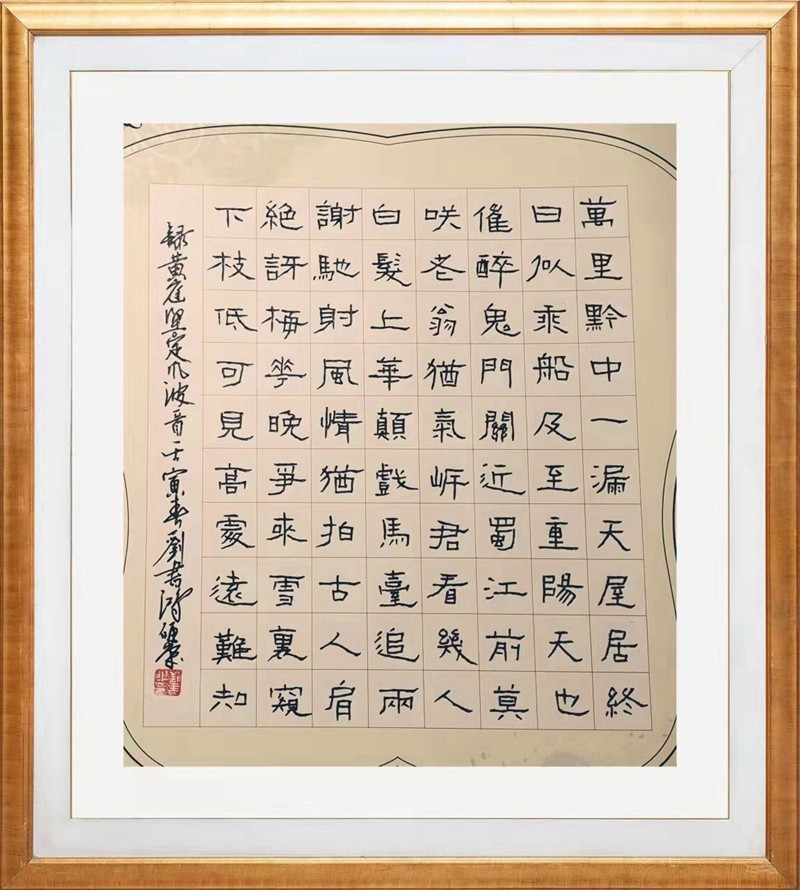 萬里黔中一漏天屋居終
日似乘船及至重陽天也
催醉鬼門關近蜀江前莫
咲老翁猶氣岸君看幾人
白髮上華顛戲馬臺追兩
謝馳射風情猶拍古人肩
絕訝梅花晚爭來雪裏窺
下枝低可見高處遠難知
錄黃庭堅定風波首壬寅春劉書